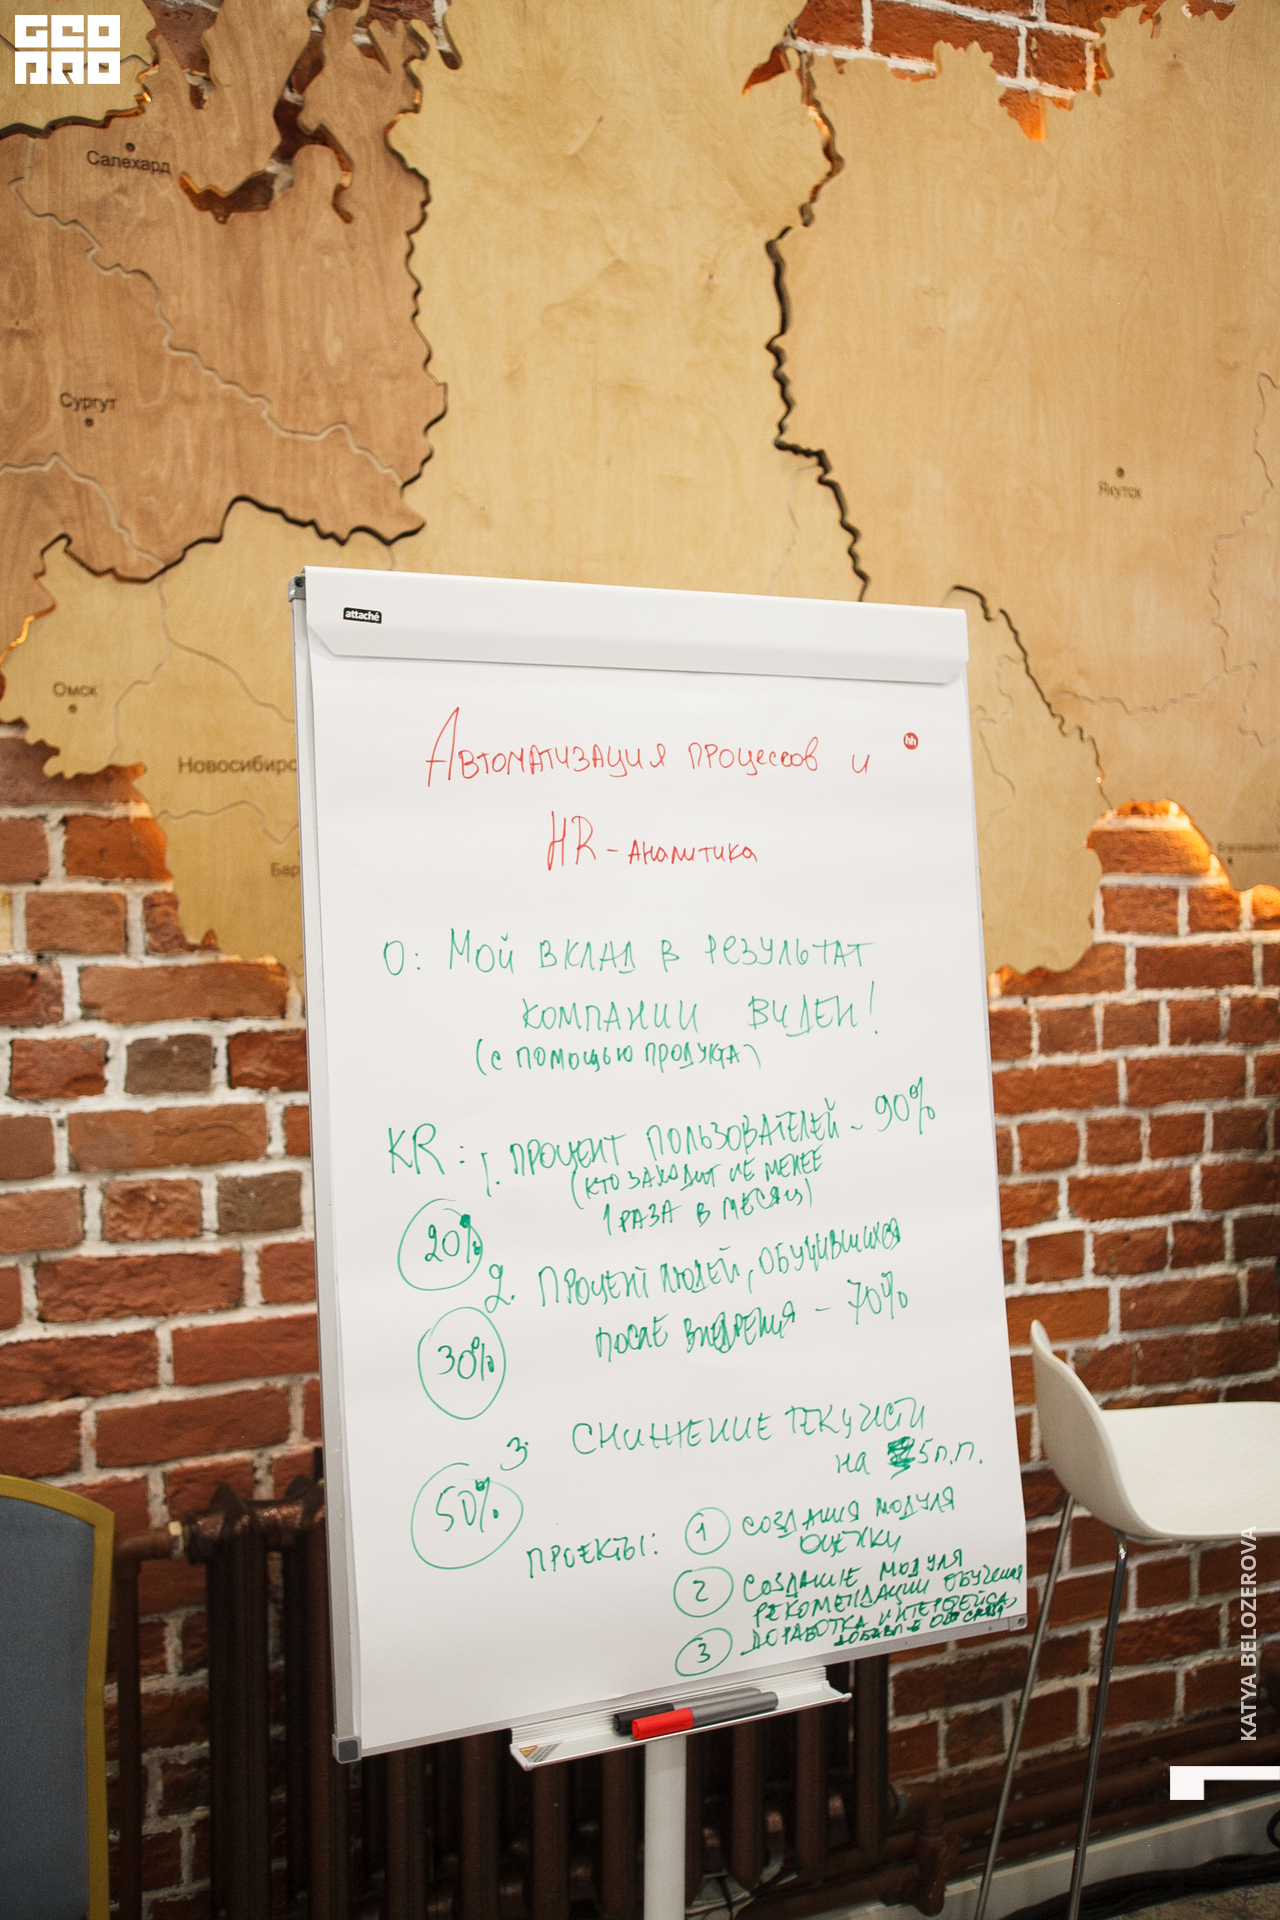 GEO
PRO
Салехард
Сургут
Якутск
Омск
Новосибирс
Бар
attaché
Автоматизация процессов и
hh
HR-аналитика
О: Мой вклад в результат
компании виден!
(с помощью продукта)
KR: 1. Процент пользователей - 90%
(кто заходит не менее
1 раза в месяц)
20%
2. Процент людей, обучившихся
после внедрения - 70%
30%
3. Снижение текучести
на 5 п.п.
50%
Проекты: 1 создания модуля
оценки
2 создание модуля
рекомендации обучения
3 доработка интерфейса,
KATYA BELOZEROVA